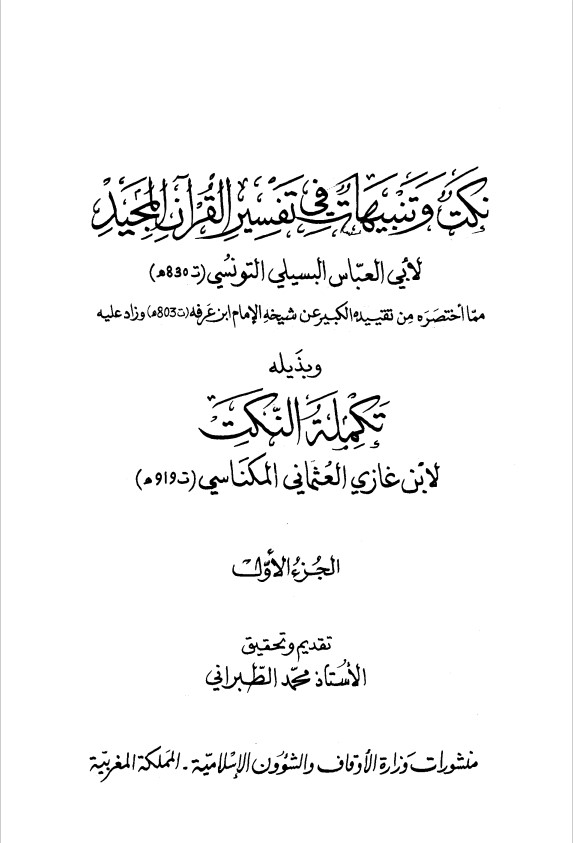 نكت وتنبيهات في تفسير القرآن المجيد
لأبي العبّاس البسيلي التونسي (ت 830 هـ)
ممّا اختصرَه مِن تقييده الكبير عن شيخهِ الإمام ابن عَرفه (ت 803 هـ) وزاد عليه
وبذَيله
تَكمِلَةُ النّكَتِ
لابْن غازي العُثماني المكناسي (ت 919 هـ)
الجزء الأوّل
تقديم وتحقيق
الأستاذ محمّد الطّبراني
منشورات وَزارة الأوقاف والشؤون الإسْلاميّة - المَملكة المغربيّة